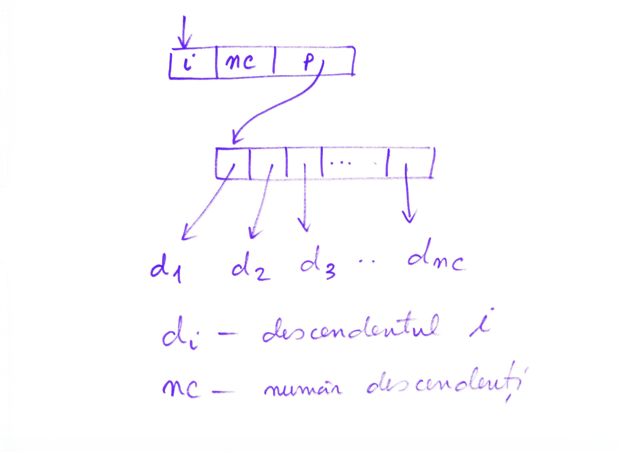 i nc p
...
d1 d2 d3 .. dnc
di - descendentul i
nc - număr descendenți